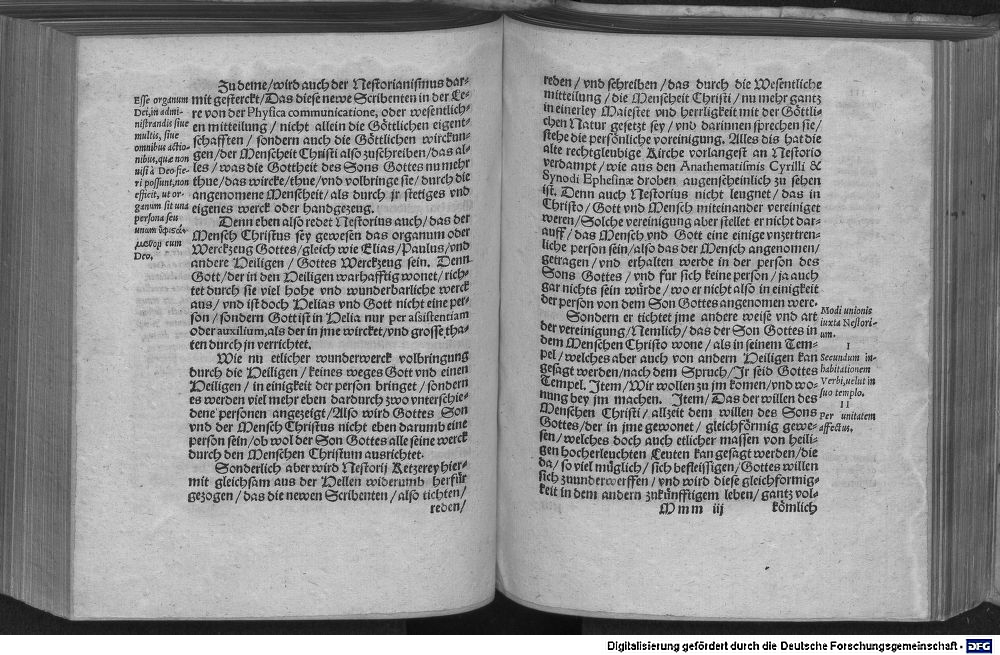 Zu deme/wird auch der Nestorianismus dar-
mit gesterckt/Das diese newe Scribenten in der Le-
re von der Physica communicatione, oder wesentlich-
en mitteilung / nicht allein die Göttlichen eigent-
schafften / sondern auch die Göttlichen wirckun-
gen/der Menscheit Christi also zuschreiben/das al-
les / was die Gottheit des Sons Gottes nu mehr
thue/das wircke/thue/vnd volbringe sie/durch die
angenomene Menscheit/als durch jr stetiges vnd
eigenes werck oder handgezeug.
Denn eben also redet Nestorius auch/das der
Mensch Christus sey gewesen das organum oder
Werckzeug Gottes/gleich wie Elias/Paulus/vnd
andere Heiligen / Gottes Werckzeug sein. Denn
Gott/der in den Heiligen warhafftig wonet/rich-
tet durch sie viel hohe vnd wunderbarliche werck
aus / vnd ist doch Helias vnd Gott nicht eine per-
son / sondern Gott ist in Helia nur per assistentiam
oder auxilium,als der in jme wircket/vnd grosse tha-
ten durch jn verrichtet.
Wie nu etlicher wunderwerck volbringung
durch die Heiligen / keines weges Gott vnd einen
Heiligen / in einigkeit der person bringet / sondern
es werden viel mehr eben dardurch zwo vnterschie-
dene personen angezeigt/Also wird Gottes Son
vnd der Mensch Christus nicht eben darumb eine
person sein/ob wol der Son Gottes alle seine werck
durch den Menschen Christum ausrichtet.
Sonderlich aber wird Nestorij Ketzerey hier-
mit gleichsam aus der Hellen widerumb herfür
gezogen / das die newen Scribenten / also tichten/
reden/
Esse organum
Dei,in admi-
nistrandis siue
multis, siue
omnibus actio-
nibus,quæ non
nisi à Deo fie-
ri possunt,non
efficit, ut or-
ganum sit una
persona seu
unum
cum
Deo.
reden / vnd schreiben / das durch die Wesentliche
mitteilung / die Menscheit Christi / nu mehr gantz
in einerley Maiestet vnd herrligkeit mit der Göttli-
chen Natur gesetzt sey / vnd darinnen sprechen sie/
stehe die persönliche voreinigung. Alles dis hat die
alte rechtgleubige Kirche vorlangest an Nestorio
verdampt / wie aus den Anathematismis Cyrilli &
Synodi Ephesinæ droben augenscheinlich zu sehen
ist. Denn auch Nestorius nicht leugnet / das in
Christo / Gott vnd Mensch miteinander vereiniget
weren/Solche vereinigung aber stellet er nicht dar-
auff / das Mensch vnd Gott eine einige vnzertren-
liche person sein/also das der Mensch angenomen/
getragen / vnd erhalten werde in der person des
Sons Gottes / vnd fur sich keine person / ja auch
gar nichts sein würde / wo er nicht also in einigkeit
der person von dem Son Gottes angenomen were.
Sondern er tichtet jme andere weise vnd art
der vereinigung/Nemlich/das der Son Gottes in
dem Menschen Christo wone / als in seinem Tem-
pel/welches aber auch von andern Heiligen kan
gesagt werden/nach dem Spruch/Jr seid Gottes
Tempel. Jtem/Wir wollen zu jm komen/vnd wo-
nung bey jm machen. Jtem/Das der willen des
Menschen Christi / allzeit dem willen des Sons
Gottes/der in jme gewonet / gleichförmig gewe-
sen/ welches doch auch etlicher massen von heili-
gen hocherleuchten Leuten kan gesagt werden/die
da/ so viel müglich / sich befleissigen / Gottes willen
sich zuunderwerffen / vnd wird diese gleichformig-
keit in dem andern zukünfftigem leben/ gantz vol-
Mmm iij kömlich
Modi unionis
iuxta Nestori-
um.
I
Secundum in-
habitationem
Verbi,uelut in
suo templo.
II
Per unitatem
affectus.
Digitalisierung gefördert durch die Deutsche Forschungsgemeinschaft - DFG